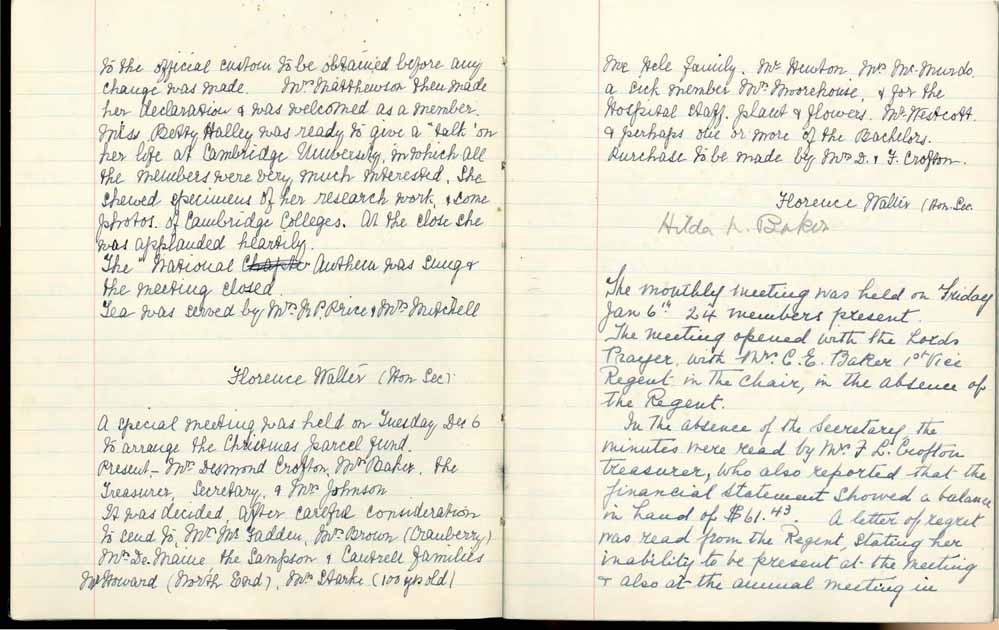 to the official custom to be obtained before any
change was made. Mrs Matthewson then made
her declaration & was welcomed as a member.
Miss Betty Halley was ready to give a "talk" on
her life at Cambridge University, in which all
the members were very much interested. She
shewed specimens of her research work, & some
photos. of Cambridge Colleges. At the close she
was applauded heartily.
The National Chapter Anthem was sung &
the meeting closed.
Tea was served by Mrs N. P. Price & Mrs Mitchell
Florence Walter (Hon Sec).
A special meeting was held on Tuesday Des 6
to arrange the Christmas parcel fund.
Present – Mrs Desmond Crofton, Mrs Baker, the
Treasurer, Secretary, & Mrs Johnson
It was decided, after careful consideration
to send to, Mrs Mc Fadden, Mrs Brown (Cranberry)
Mrs De. Maine, the Sampson & Cantrell families
Mr Howard (North End), Mrs Starke (100 yrs old)
The Hele family. Mr Hewton. Mrs Mc Murdo,
a sick member Mrs Moorehouse, & for the
Hospital Staff. plant & flowers. Mr Westcott.
& perhaps one or more of the Bachelors.
Purchase to be made by Mrs D. & F. Crofton.
Florence Walter (Hon Sec.
Hilda Baker
The monthly meeting was held on Friday
Jan 6th 24 members present.
The meeting opened with the Lords
Prayer, with Mrs. C. E. Baker 1st Vice
Regent in the chair, in the absence of
the Regent.
In the absence of the Secretary the
minutes were read by Mrs F. L. Crofton
treasurer, who also reported that the
financial statement showed a balance
in hand of $61.43. A letter of regret
was read from the Regent, stating her
inability to be present at the meeting
& also at the annual meeting in